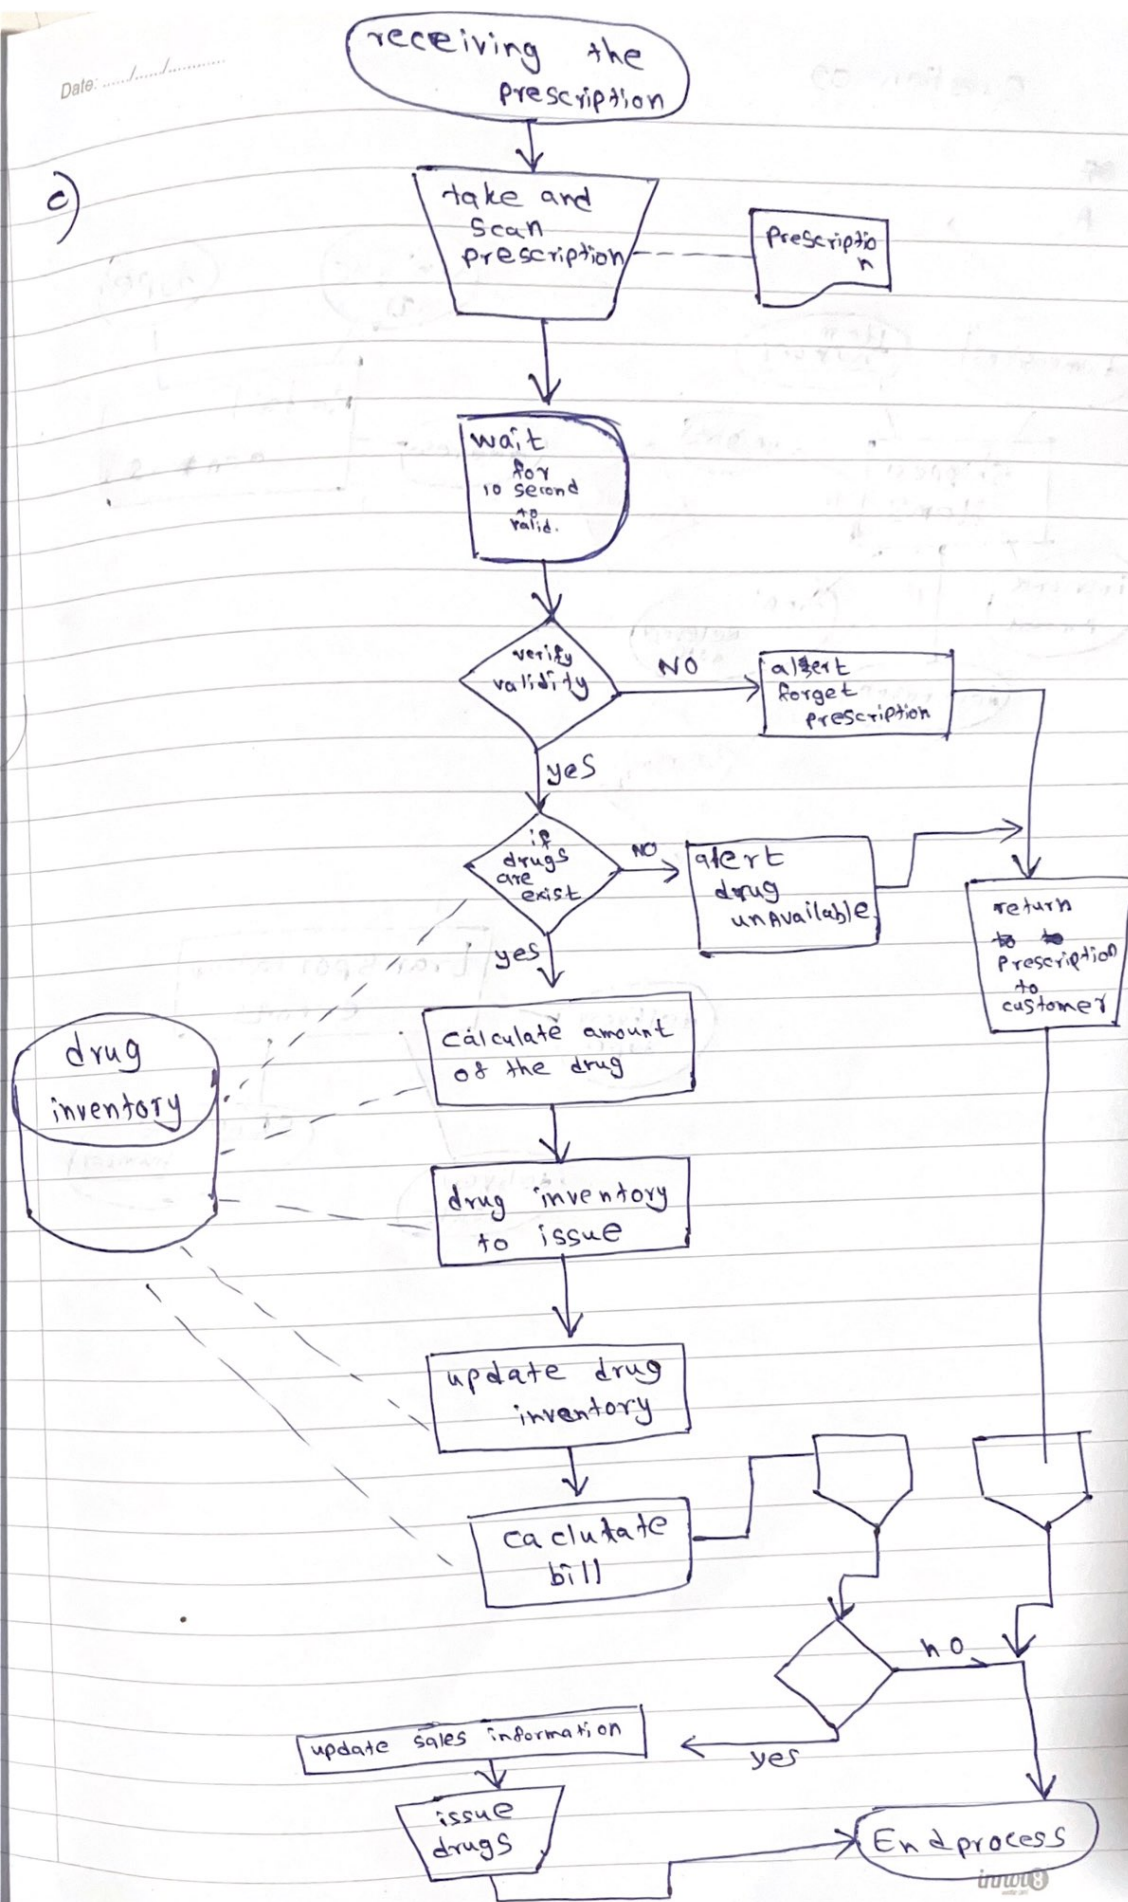 Date: ....../....../............
receiving the
prescription
c)
take and
scan
prescription
prescriptio
n
wait
for
10 second
to
valid.
verify
validity
NO
alert
forget
prescription
yes
if
drugs
are
exist
NO
alert
drug
unAvailable
return
to to
prescription
to
customer
yes
drug
inventory
calculate amount
of the drug
drug inventory
to issue
update drug
inventory
caclutate
bill
no
update sales information
yes
issue
drugs
End process